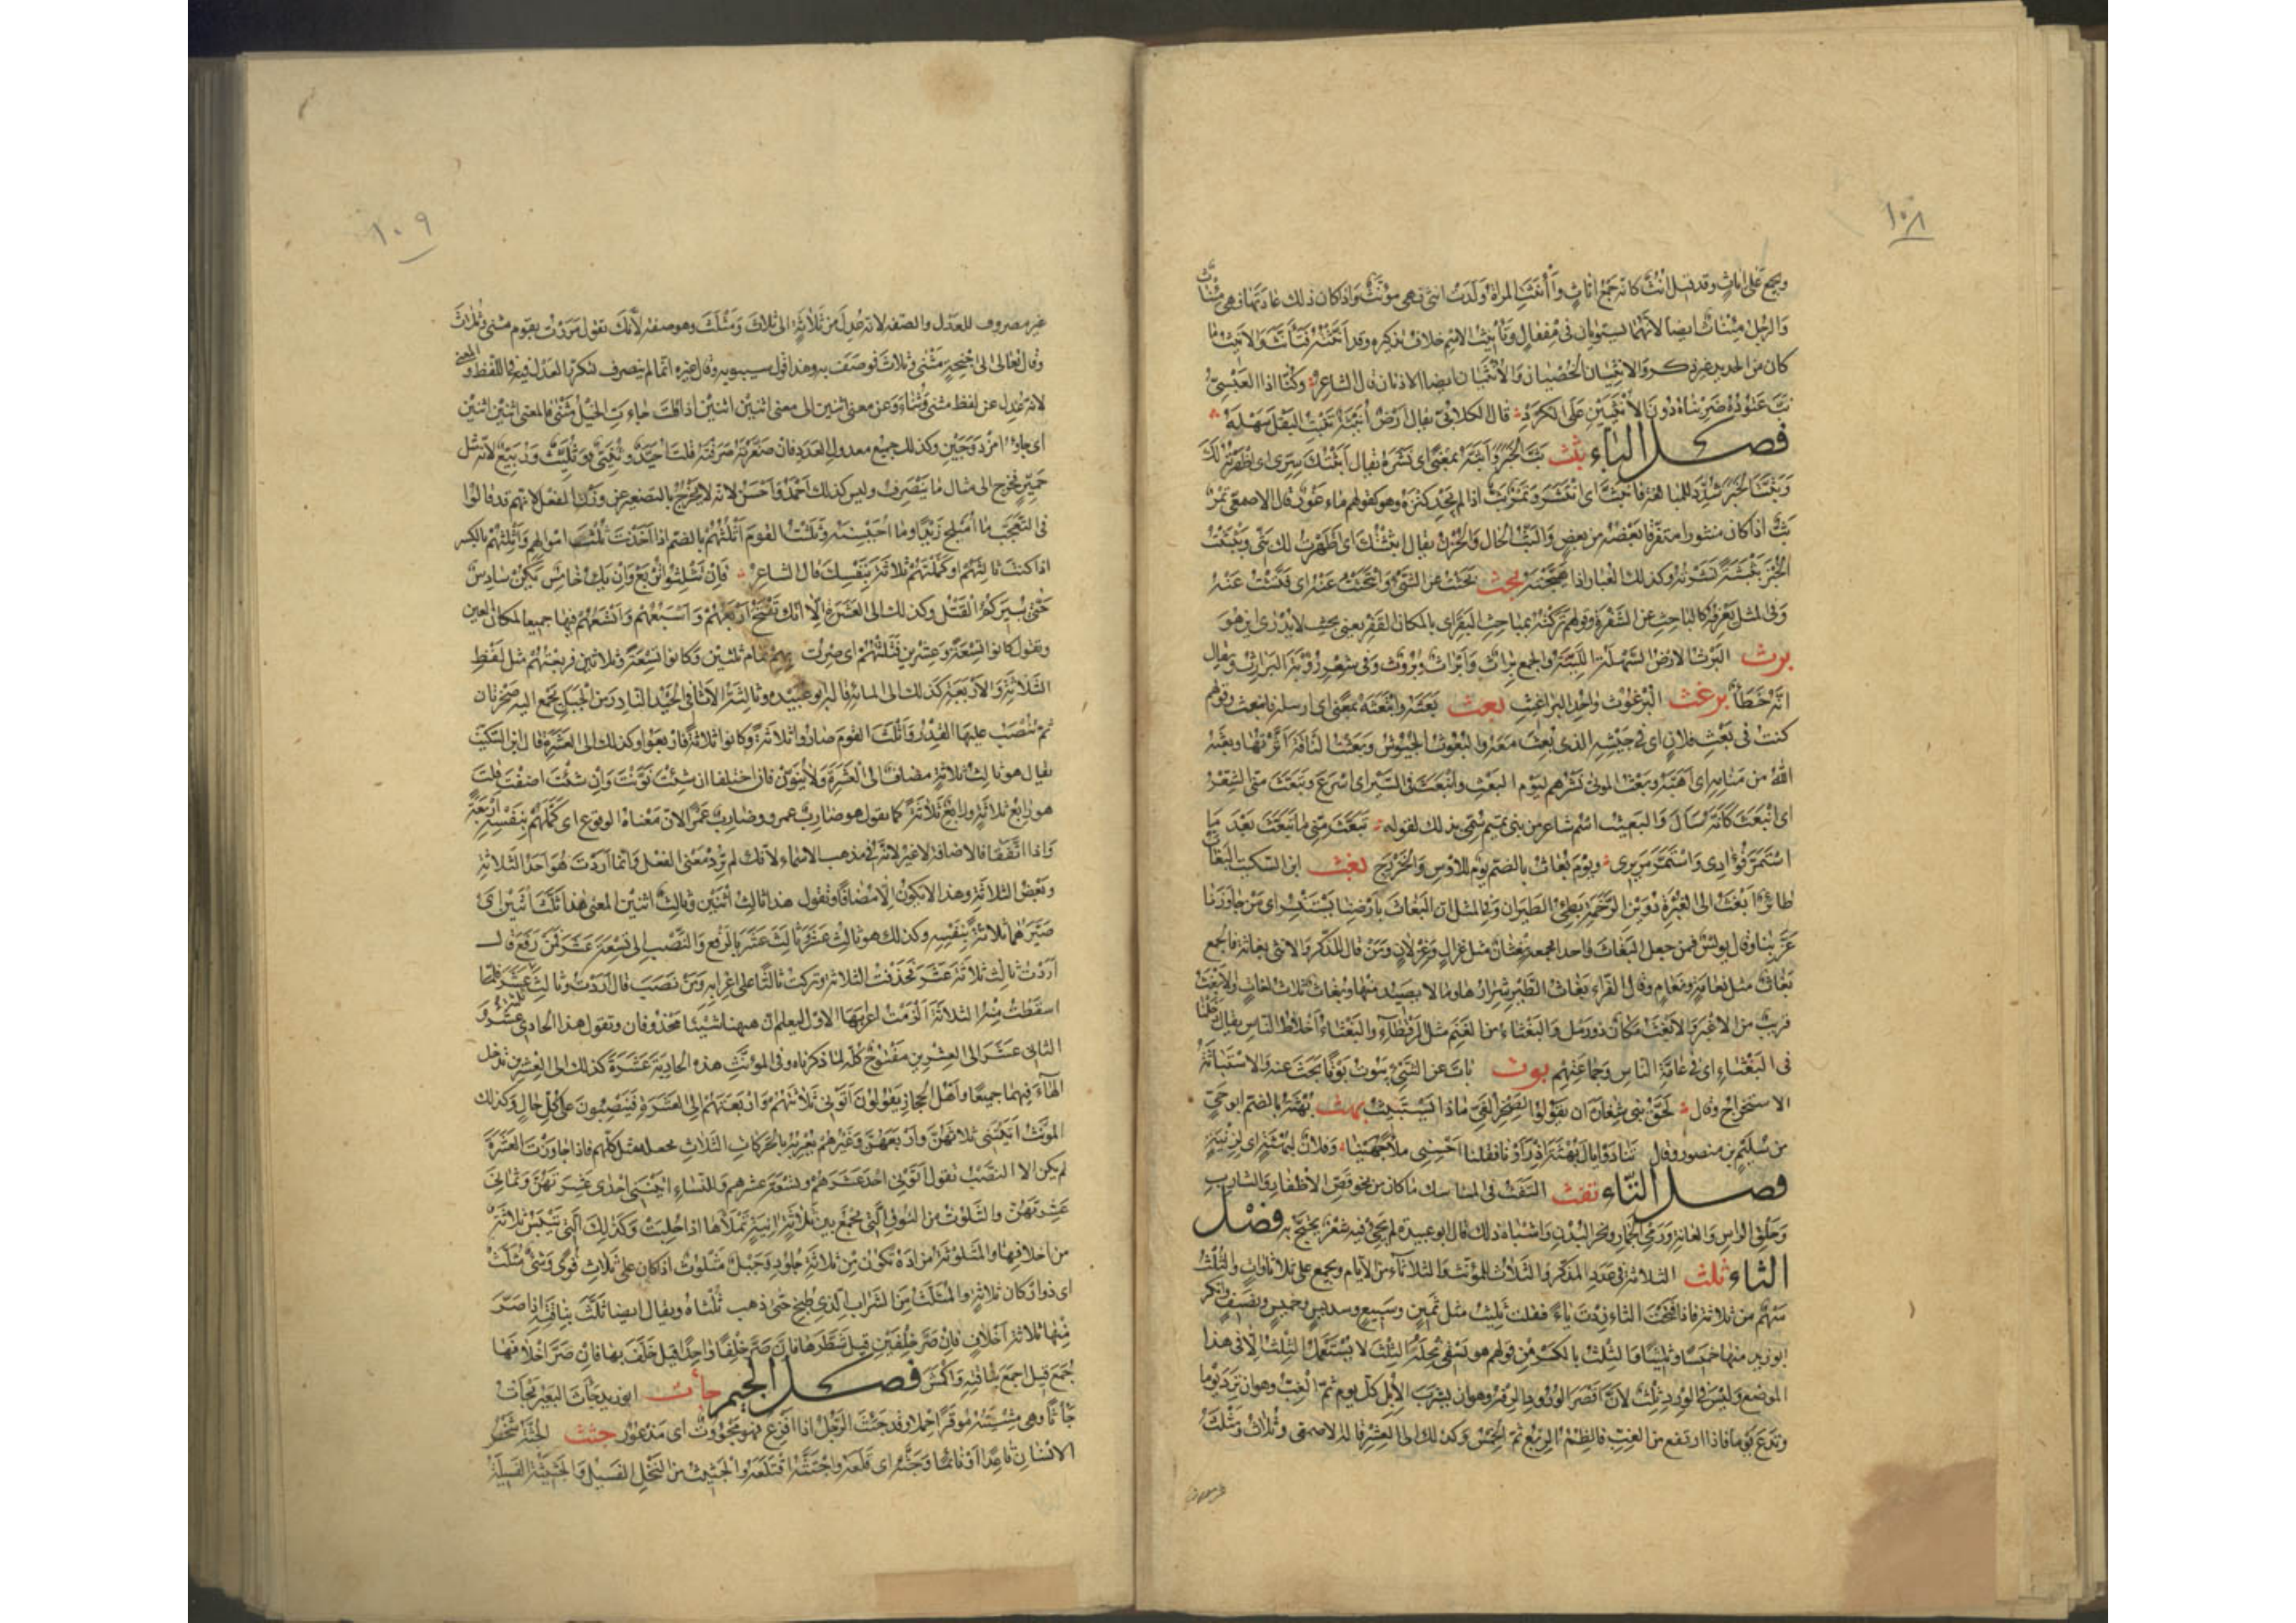 ١٠٨
ويجمع على اناث وقد قيل انث كانه جمع اناث وآنثت المراة ولدت انثى فهي مؤنث واذا كان ذلك عادتها فهي مئناث
والرجل مئناث ايضا لانهما يستويان في مفعال وتأنيث الاسم خلاف تذكيره وقد انثته فتأنث والانيث ما
كان من الحديد غير ذكر والانثيان الخصيتان والانثيان ايضا الاذنان قال الشاعر وكنا اذا العبسي
نب عتوده ضربناه دون الانثيين على الكرد قال الكلابي يقال ارض انيثة تنبت البقل سهلة
فصل الباء بثث بث الخبر وابثه بمعنى اى نشره يقال ابثثتك سرى اى اظهرته لك
وبثثت الخبر شدد للمبالغة فانبث اى انتشر وتمر بث اذا لم يجد كنزه وهو كقولهم ماء غور قال الاصمعي تمر
بث اذا كان منثورا متفرقا بعضه من بعض والبث الحال والحزن يقال ابثثتك اى اظهرت لك بثى وبثبثت
الخبر بثبثة نشرته وكذلك الغبار اذا هيجته بحث بحثت عن الشئ وابتحثت عنه اى فتشت عنه
وفي المثل كالباحث عن الشفرة وقولهم تركته بمباحث البقر اى بالمكان القفر يعنى بحيث لا يدرى اين هو
برث البرث الارض السهلة اللينة والجمع براث وابراث وبروث وفي شعر رؤبة البرارث ويقال
انه خطأ برغث البرغوث واحد البراغيث بعث بعثه وابتعثه بمعنى اى ارسله فانبعث وقولهم
كنت في بعث فلان اى في جيشه الذى بعث معه والبعوث الجيوش وبعثت الناقة اثرتها وبعثه
الله من منامه اى اهبه وبعث الموتى نشرهم ليوم البعث وانبعث في السير اى اسرع وتبعث منى الشعر
اى انبعث كانه سال والبعيث اسم شاعر من بنى تميم سمى بذلك لقوله تبعث منى ما تبعث بعد ما
استمر فؤادى واستمر مريرى ويوم بعاث بالضم يوم للاوس والخزرج بغث ابن السكيت البغاث
طائر ابغث الى الغبرة دوين الرخمة بطئ الطيران وفي المثل ان البغاث بارضنا يستنسر اى من جاورنا
عز بنا وقال يونس فمن جعل البغاث واحدا فجمعه بغثان مثل غزال وغزلان ومن قال للذكر والانثى بغاثة فالجمع
بغاث مثل نعامة ونعام وقال الفراء بغاث الطير شرارها وما لا يصيد منها وبغاث ثلاث لغات والابغث
قريب من الاغبر والابغث مكان ذو رمل والبغثاء من الغنم مثل الرقطاء والبغثاء اخلاط الناس يقال دخلنا
فى البغثاء اى في عامة الناس وجماعتهم بوث باث عن الشئ يبوث بوثا بحث عنه والاستباثة
الاستخراج وقال لحق بنى شغارة ان يقولوا لصخر الغى ماذا تستبيث بهث بهثة بالضم ابو حى
من سليم بن منصور وقال تنادوا يال بهثة اذ رأونا فقلنا احسنى ملأ جهينا وفلان لبهثة اى لزنية
فصل التاء تفث التفث فى المناسك ما كان من نحو قص الاظفار والشارب
وحلق الراس والعانة ورمى الجمار ونحر البدن واشباه ذلك قال ابو عبيدة لم يجئ فيه شعر يحتج به فصل
الثاء ثلث الثلاثة في عدد المذكر والثلاث للمؤنث والثلاثاء من الايام ويجمع على ثلاثاوات والثلث
سهم من ثلاثة فاذا فتحت الثاء زدت ياء فقلت ثليث مثل ثمين وسبيع وسديس وخميس ونصيف وانكر
ابو زيد منها خميسا وثليثا والثلث بالكسر من قولهم هو يسقى نخله الثلث لا يستعمل الثلث الا في هذا
الموضع وليس في الورد ثلث لان اقصر الورد الرفه وهو ان يشرب الابل كل يوم ثم الغب وهو ان ترد يوما
وتدع يوما فاذا ارتفع من الغب فالظمء الربع ثم الخمس وكذلك الى العشر قاله الاصمعى وثلاث ومثلث
١٠٩
غير مصروف للعدل والصفة لانه عدل من ثلاثة الى ثلاث ومثلث وهو صفة لانك تقول مررت بقوم مثنى وثلاث
وقال تعالى اولى اجنحة مثنى وثلاث فوصف به وهذا قول سيبويه وقال غيره انما لم ينصرف لتكرر العدل فيه في اللفظ والمعنى
لانه عدل عن لفظ اثنين الى لفظ مثنى وثناء وعن معنى اثنين الى معنى اثنين اثنين اذا قلت جاءت الخيل مثنى فالمعنى اثنين اثنين
اى جاؤا مزدوجين وكذلك جميع معدول العدد فان صغرته صرفته فقلت احيد وثنى وثليث وربيع لانه مثل
حمير فخرج الى مثال ما ينصرف وليس كذلك احمد واحسن لانه لا يخرج بالتصغير عن وزن الفعل لانهم قد قالوا
فى التعجب ما اميلح زيدا وما احيسنه وثلثت القوم اثلثهم بالضم اذا اخذت ثلث اموالهم واثلثهم بالكسر
اذا كنت ثالثهم او كملتهم ثلاثة بنفسك قال الشاعر فان تثلثوا نربع وان يك خامس يكن سادس
حتى يبيركم القتل وكذلك الى العشرة الا انك تفتح اربعهم واسبعهم واتسعهم فيها جميعا لمكان العين
وتقول كانوا تسعة وعشرين فثلثتهم اى صرت بهم تمام ثلثين وكانوا تسعة وثلاثين فربعتهم مثل لفظ
الثلاثة والاربعة كذلك الى المائة قال ابو عبيده وثالثة الاثافى الحيد النادر من الجبل يجمع اليه صخرتان
ثم تنصب عليها القدر واثلث القوم صاروا ثلاثة وكانوا ثلاثة فاربعوا وكذلك الى العشرة قال ابن السكيت
يقال هو ثالث ثلاثة مضاف الى العشرة ولا ينون فان اختلفا ان شئت نونت وان شئت اضفت قلت
هو رابع ثلاثة ورابع ثلاثة كما تقول هو ضارب عمرو وضارب عمرا لان معناه الوقوع اى كملهم بنفسه اربعة
واذا اتفقا فالاضافة لا غير لانه في مذهب الاسماء لانك لم ترد معنى الفعل وانما اردت هو احد الثلاثة
وبعض الثلاثة وهذا لا يكون الا مضافا وتقول هذا ثالث اثنين وثالث اثنين المعنى هذا ثلث اثنين اى
صيرهما ثلاثة بنفسه وكذلك هو ثالث عشر وثالث عشر بالرفع والنصب الى تسعة عشر فمن رفع قال
اردت ثالث ثلاثة عشر فحذفت الثلاثة وتركت ثالثا على اعرابه ومن نصب قال اردت ثالث ثلاثة عشر فلما
اسقطت منها الثلاثة الزمت اعرابها الاول ليعلم ان ههنا شيئا محذوفا وتقول هذا الحادى عشر و
الثانى عشر الى العشرين مفتوح كله لما ذكرناه وفى المؤنث هذه الحادية عشرة كذلك الى العشرين تدخل
الهاء فيهما جميعا واهل الحجاز يقولون اتونى ثلاثتهم واربعتهم الى العشرة فينصبون على كل حال وكذلك
المؤنث اتيننى ثلاثهن واربعهن وغيرهم يعربه بالحركات الثلاث يجعله مثل كلهم فاذا جاوزت العشرة
لم يكن الا النصب تقول اتونى احد عشرهم وتسعة عشرهم وللنساء اتيننى احدى عشرتهن وثمانى
عشرتهن والثلوث من النوق التى تجمع بين ثلاثة انية تملأها اذا حلبت وكذلك التى تيبس ثلاثة
من اخلافها والمثلوثة مزادة تكون من ثلاثة جلود وحبل مثلوث اذا كان على ثلاث قوى وشئ مثلث
اى ذو اركان ثلاثة والمثلث من الشراب الذى طبخ حتى ذهب ثلثاه ويقال ايضا ثلث بناقته اذا صر
منها ثلاثة اخلاف فان صر خلفين قيل شطر بها فان صر خلفا واحدا قيل خلف بها فان صر اخلافها
جمع قيل اجمع بناقته واكمش فصل الجيم جأث ابو زيد جأث البعير يجأث
جأثا وهى مشيته موقرا حملا وقد جئث الرجل اذا افزع فهو مجؤوث اى مذعور جثث الجثة شخص
الانسان قاعدا او نائما وجثه اى قلعه واجتثه اقتلعه والجثيث من النخل الفسيل والجثيثة الفسيلة